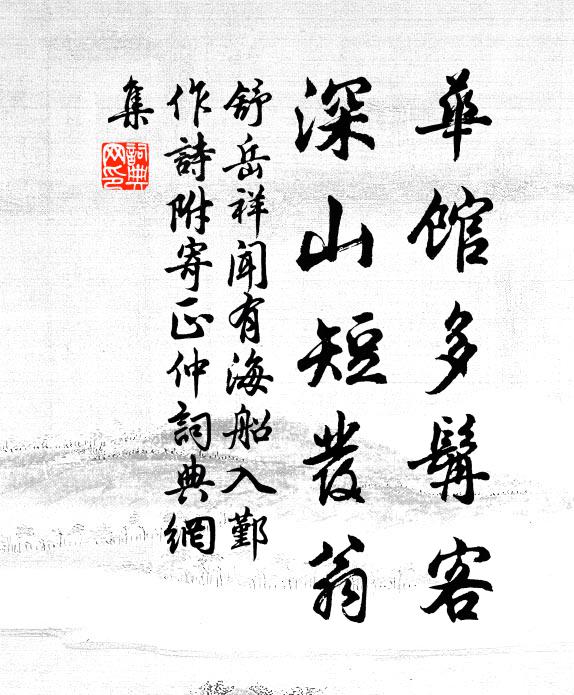 華館多髯客
深山短發翁
舒岳祥聞有海船入鄞
作詩附寄正仲詞典網
集
詞典
网印